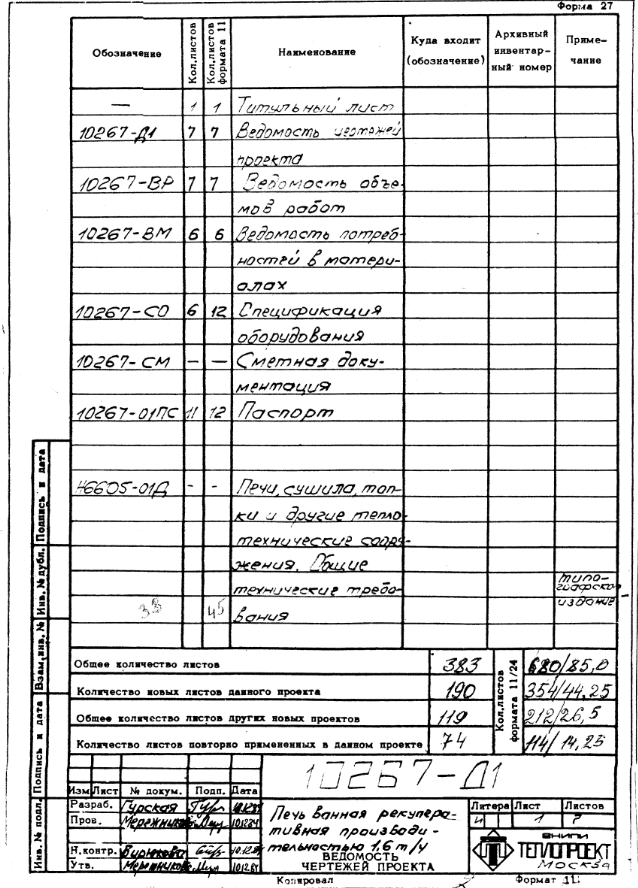 Форма 27
Обозначение
Кол.листов
Кол.листов формата 11
Наименование
Куда входит (обозначение)
Архивный инвентар- ный номер
Приме- чание
— 1 1 Титульный лист
10267-Д1 7 7 Ведомость чертежей
проекта
10267-ВР 7 7 Ведомость объе-
мов работ
10267-ВМ 6 6 Ведомость потреб-
ностей в матери-
алах
10267-СО 6 12 Спецификация
оборудования
10267-СМ — — Сметная доку-
ментация
10267-01ПС 11 12 Паспорт
Н6605-01Д - - Печи, сушила, топ-
ки и другие тепло-
технические соору-
жения. Общие
технические требо-
вания
типо-
графское
издание
33 45
Общее количество листов 383 680/85,0
Количество новых листов данного проекта 190 354/44,25
Общее количество листов других новых проектов 119 212/26,5
Количество листов повторно примененных в данном проекте 74 114/14,25
Кол.листов формата 11/24
10267-Д1
Изм Лист № докум. Подп. Дата
Разраб. Гурская
Пров.
Н.контр. Бирюкова
Утв.
Печь ванная рекупера-
тивная производи-
тельностью 1,6 т/ч
ВЕДОМОСТЬ
ЧЕРТЕЖЕЙ ПРОЕКТА
Литера Лист Листов
И 1 7
ВНИПИ
ТЕПЛОПРОЕКТ
МОСКВА
Копировал
Формат 11
Инв. № подл.
Подпись и дата
Взам. инв. №
Инв. № дубл.
Подпись и дата